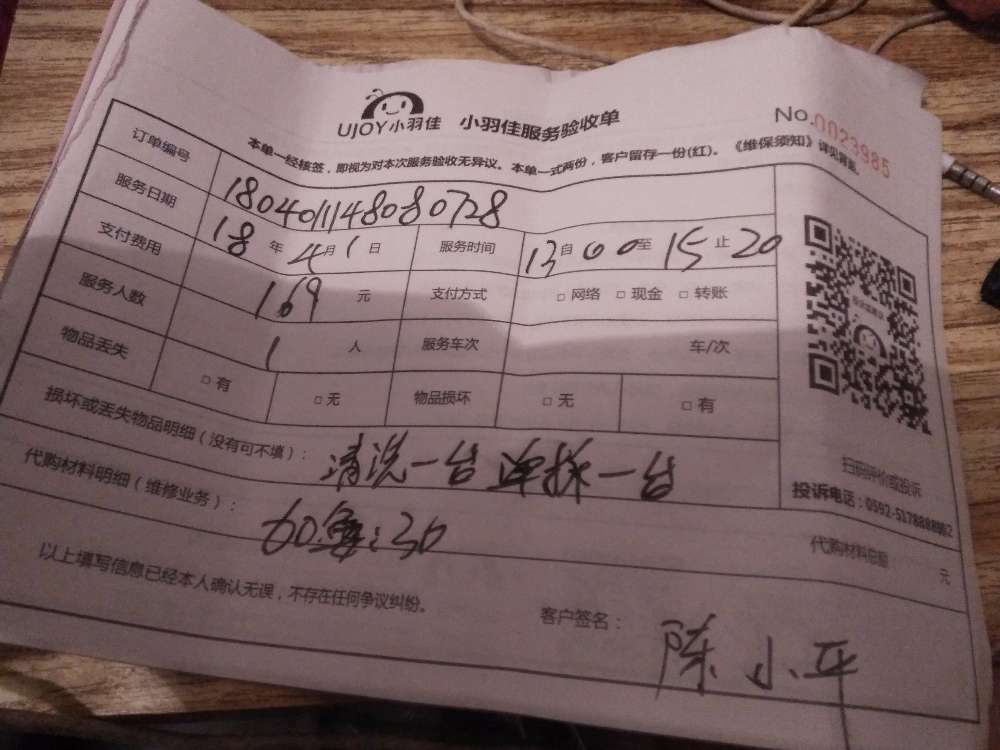 UJOY小羽佳 小羽佳服务验收单
No.0023985
本单一经核签，即视为对本次服务验收无异议。本单一式两份，客户留存一份(红)。《维保须知》详见背面。
订单编号 180401114808 0728
服务日期 18年4月1日 服务时间 13自00至15止20
支付费用 169元 支付方式 □网络 □现金 □转账
服务人数 1人 服务车次 车/次
物品丢失 □有 □无 物品损坏 □无 □有
损坏或丢失物品明细（没有可不填）： 清洗一台 单拆一台
代购材料明细（维修业务）： 60 30
扫码评价或投诉
投诉电话：0592-5178888
代购材料总额 元
以上填写信息已经本人确认无误，不存在任何争议纠纷。
客户签名： 陈小平